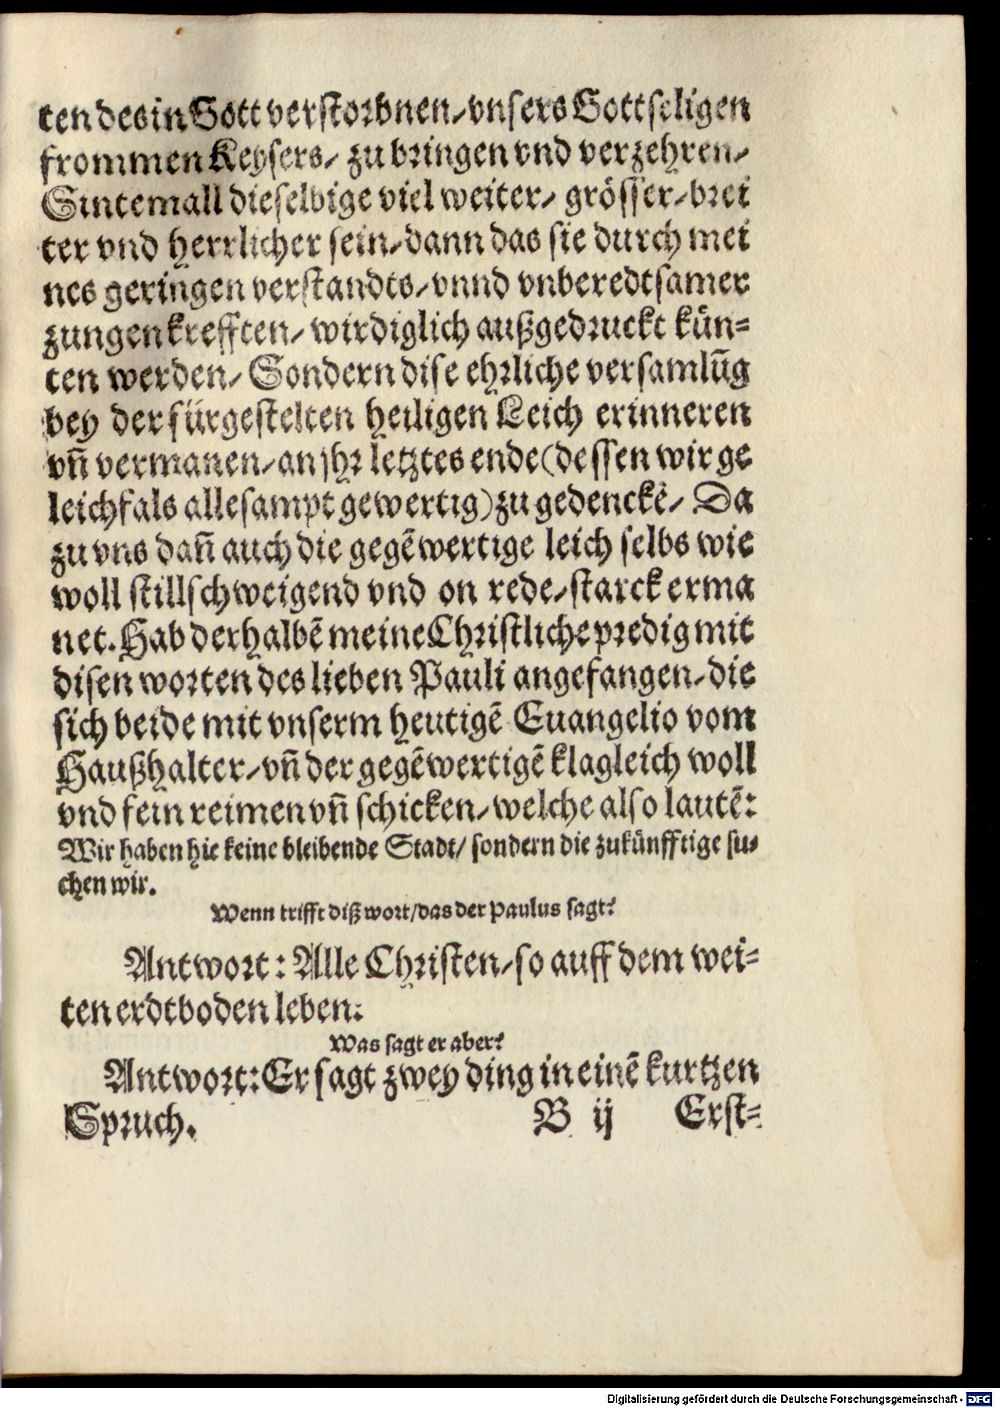 ten des in Gott verstorbnen/ vnsers Gottseligen
frommen Keysers/ zu bringen vnd verzehren/
Sintemall dieselbige viel weiter/ grösser/ brei
ter vnd herrlicher sein/ dann das sie durch mei
nes geringen verstandts/ vnnd vnberedtsamer
zungen krefften/ wirdiglich außgedruckt kün=
ten werden/ Sondern dise ehrliche versamlūg
bey der fürgestelten heiligen Leich erinneren
vñ vermanen/ an jhr letztes ende (dessen wir ge
leichfals allesampt gewertig) zu gedenckē/ Da
zu vns dañ auch die gegēwertige leich selbs wie
woll stillschweigend vnd on rede/ starck erma
net. Hab derhalbē meine Christliche predig mit
disen worten des lieben Pauli angefangen/ die
sich beide mit vnserm heutigē Euangelio vom
Haußhalter/ vñ der gegēwertigē klagleich woll
vnd fein reimen vñ schicken/ welche also lautē:
Wir haben hie keine bleibende Stadt/ sondern die zukünfftige su=
chen wir.
Wenn trifft diß wort/ das der Paulus sagt?
Antwort: Alle Christen/ so auff dem wei=
ten erdtboden leben.
Was sagt er aber?
Antwort: Er sagt zwey ding in einē kurtzen
Spruch. B ij Erst=
Digitalisierung gefördert durch die Deutsche Forschungsgemeinschaft - DFG